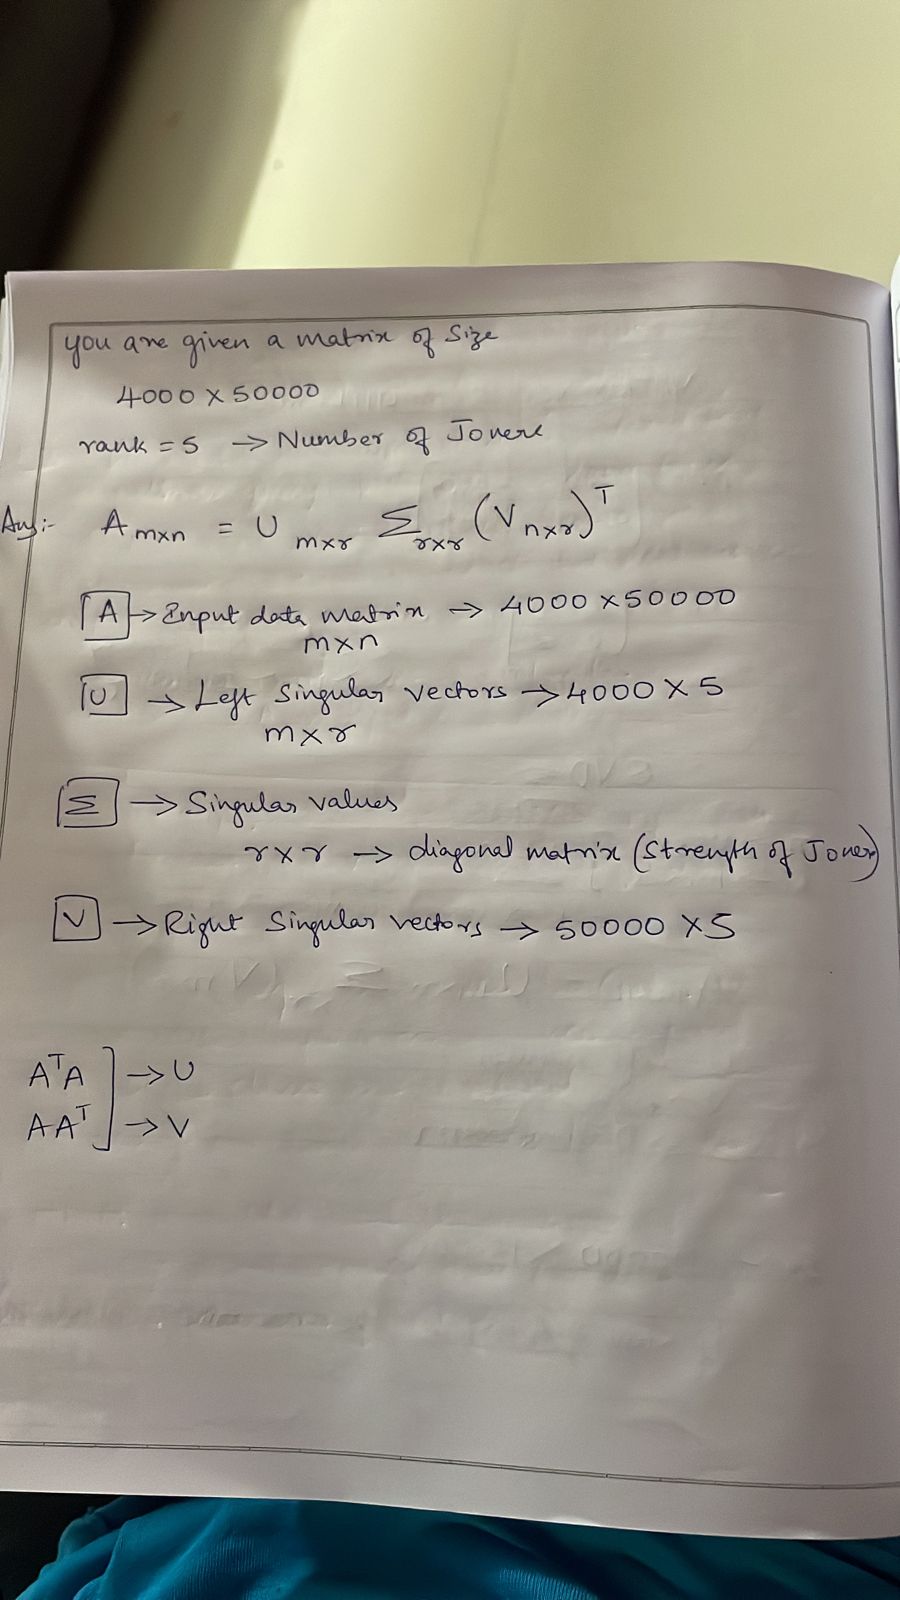 you are given a matrix of size
4000 x 50000
rank = 5 → Number of Jonere
Ans:- A m×n = U m×r Σ r×r (V n×r)ᵀ
A → Input data matrix → 4000 × 50000
m×n
U → Left Singular vectors → 4000 × 5
m×r
Σ → Singular values
r×r → diagonal matrix (Strength of Joner)
V → Right Singular vectors → 50000 × 5
AᵀA ] → U
AAᵀ ] → V